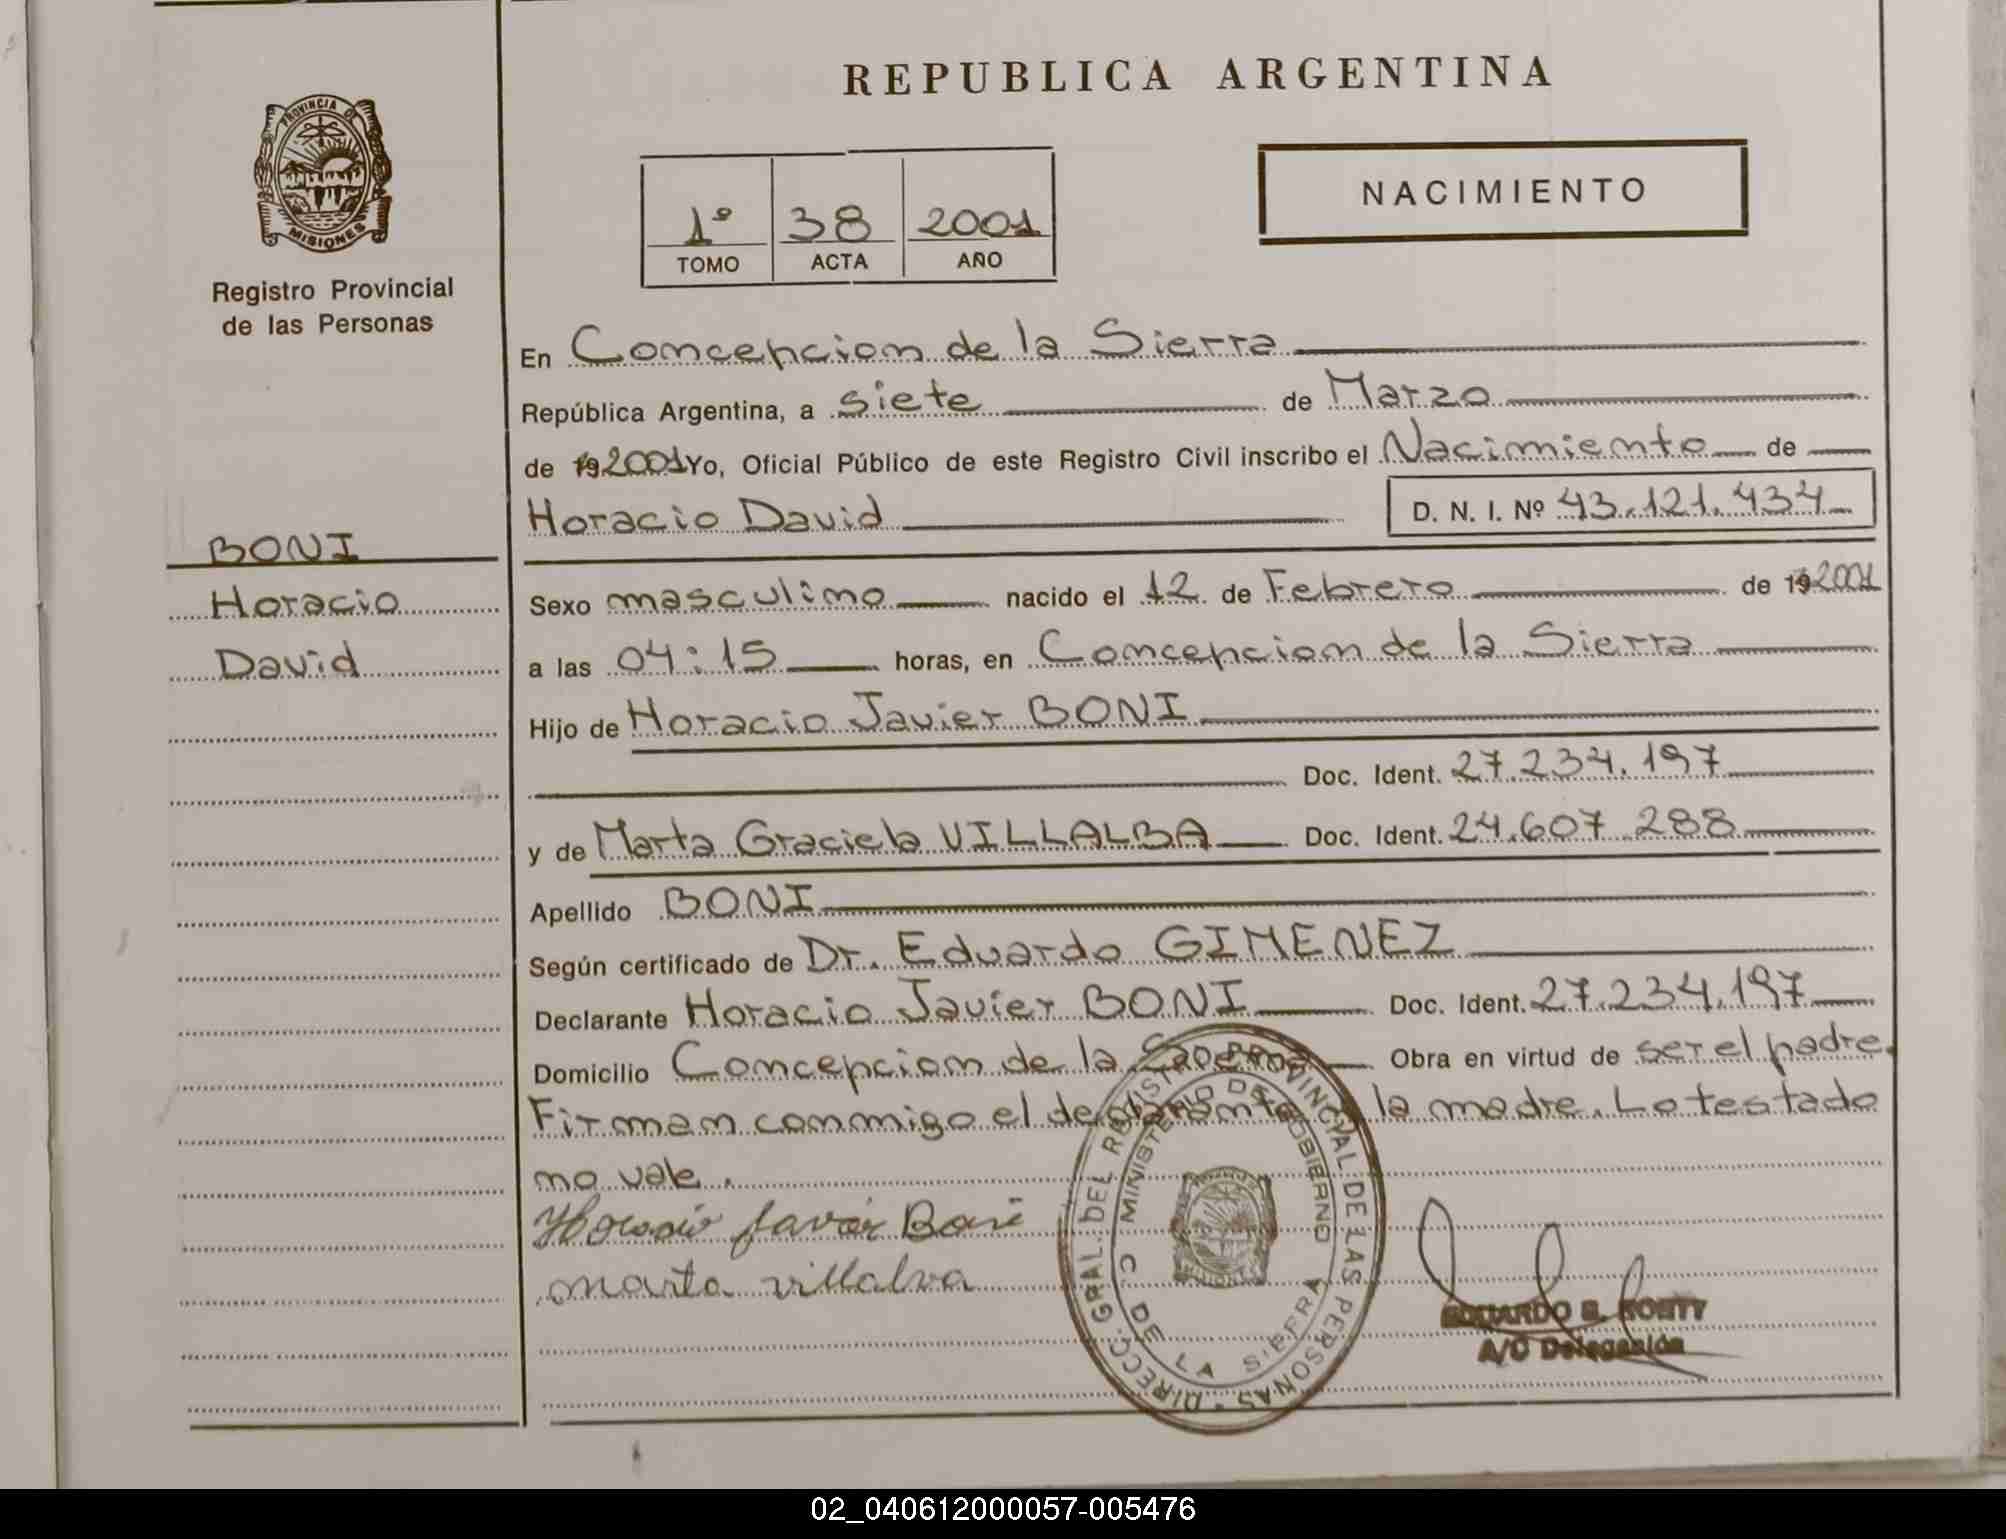 REPUBLICA ARGENTINA
PROVINCIA DE
MISIONES
Registro Provincial
de las Personas
1º 38 2001
TOMO ACTA AÑO
NACIMIENTO
BONI
Horacio
David
En Concepcion de la Sierra
República Argentina, a siete de Marzo
de 19 2001 Yo, Oficial Público de este Registro Civil inscribo el Nacimiento de
Horacio David D. N. I. Nº 43.121.434
Sexo masculino nacido el 12 de Febrero de 19 2001
a las 04:15 horas, en Concepcion de la Sierra
Hijo de Horacio Javier BONI
Doc. Ident. 27.234.197
y de Marta Graciela VILLALBA Doc. Ident. 24.607.288
Apellido BONI
Según certificado de Dr. Eduardo GIMENEZ
Declarante Horacio Javier BONI Doc. Ident. 27.234.197
Domicilio Concepcion de la Sierra Obra en virtud de ser el padre.
Firman conmigo el declarante y la madre. Lo testado
no vale.
Horacio Javier Boni
Marta villalva
DIRECC. GRAL. DEL REGISTRO PROVINCIAL DE LAS PERSONAS
MINISTERIO DE GOBIERNO
C DE LA SIERRA
MISIONES
EDUARDO
A/C Delegación
02_040612000057-005476